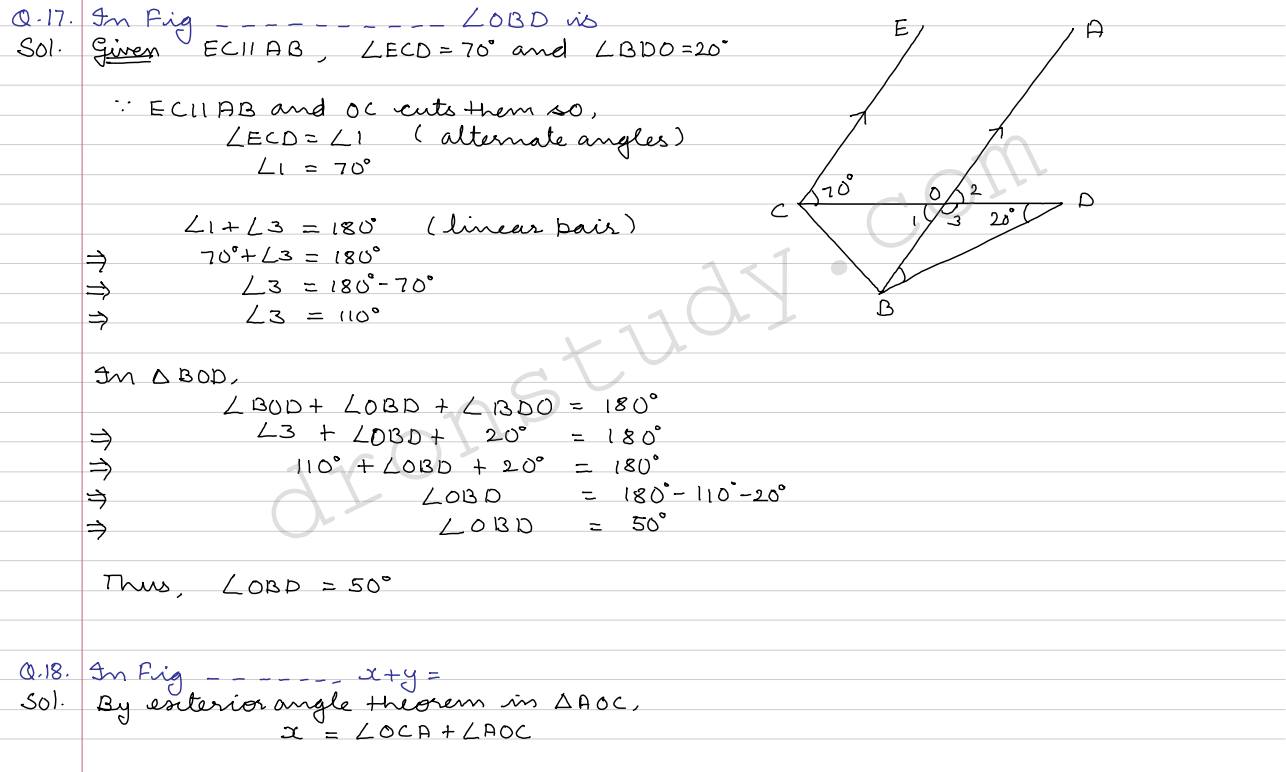 Q.17. In Fig ----------- ∠OBD is
Sol. Given EC||AB, ∠ECD = 70° and ∠BDO = 20°
∵ EC||AB and OC cuts them so,
∠ECD = ∠1 (alternate angles)
∠1 = 70°
∠1 + ∠3 = 180° (linear pair)
⇒ 70° + ∠3 = 180°
⇒ ∠3 = 180° - 70°
⇒ ∠3 = 110°
In △BOD,
∠BOD + ∠OBD + ∠BDO = 180°
⇒ ∠3 + ∠OBD + 20° = 180°
⇒ 110° + ∠OBD + 20° = 180°
⇒ ∠OBD = 180° - 110° - 20°
⇒ ∠OBD = 50°
Thus, ∠OBD = 50°
E A
70° O 2
C D
1 3 20°
B
dronstudy.com
Q.18. In Fig ------- x+y =
Sol. By exterior angle theorem in △AOC,
x = ∠OCA + ∠AOC